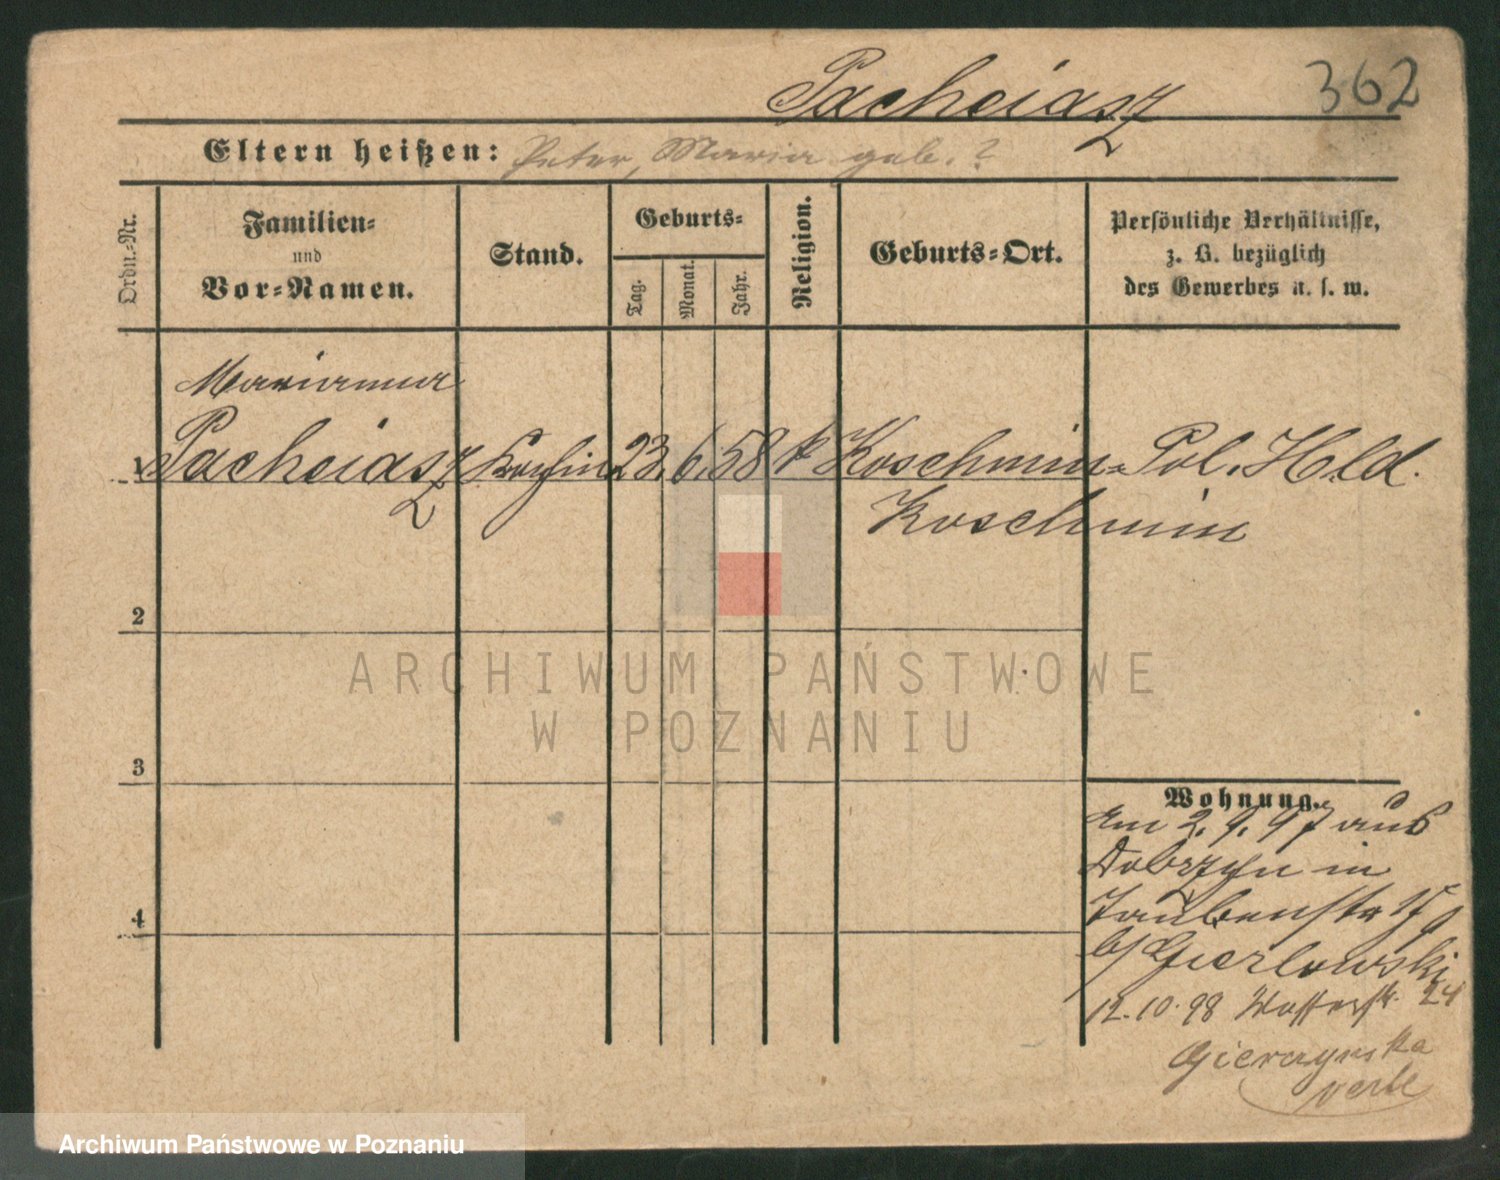 Pacheiasz
362
Eltern heißen: Peter, Maria geb. ?
Ordn.-Nr.
Familien-
und
Vor-Namen.
Stand.
Geburts-
Tag.
Monat.
Jahr.
Religion.
Geburts-Ort.
Persönliche Verhältnisse,
z. B. bezüglich
des Gewerbes u. s. w.
Marianna
1 Pacheiasz Köchin 23. 6. 58 k Koschmin- Pol. Hld.
Koschmin
2
3
4
Wohnung.
Am 2. 9. 97 aus
Dobrzyn in
Taubenstr
b/ Gierlowski
12. 10. 98 Wasserstr. 24
verte
ARCHIWUM PAŃSTWOWE
W POZNANIU
Archiwum Państwowe w Poznaniu